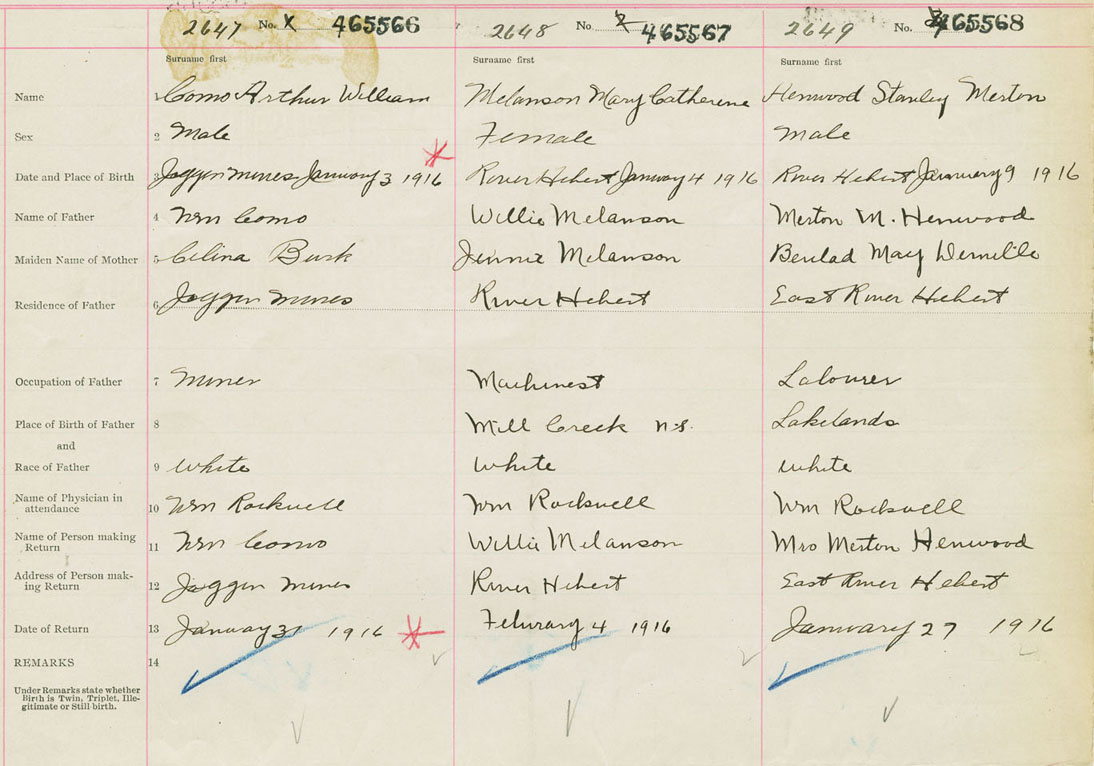 2647 No. X 465566 2648 No. 2 465567 2649 No. 3 465568
Surname first Surname first Surname first
Name 1 Como Arthur William Melanson Mary Catherene Henwood Stanley Merton
Sex 2 Male Female Male
Date and Place of Birth 3 Joggin Mines January 3 1916 River Hebert January 4 1916 River Hebert January 9 1916
Name of Father 4 Wm Como Willie Melanson Merton M. Henwood
Maiden Name of Mother 5 Celina Burk Jennie Melanson Beulad May
Residence of Father 6 Joggin Mines River Hebert East River Hebert
Occupation of Father 7 Miner Machinest Labourer
Place of Birth of Father 8 Mill Creek N.S. Lakelands
and
Race of Father 9 White White White
Name of Physician in
attendance 10 Wm Rockwell Wm Rockwell Wm Rockwell
Name of Person making
Return 11 Wm Como Willie Melanson Mrs Merton Henwood
Address of Person mak-
ing Return 12 Joggin Mines River Hebert East River Hebert
Date of Return 13 January 31 1916 Feburary 4 1916 January 27 1916
REMARKS 14
Under Remarks state whether
Birth is Twin, Triplet, Ille-
gitimate or Still-birth.